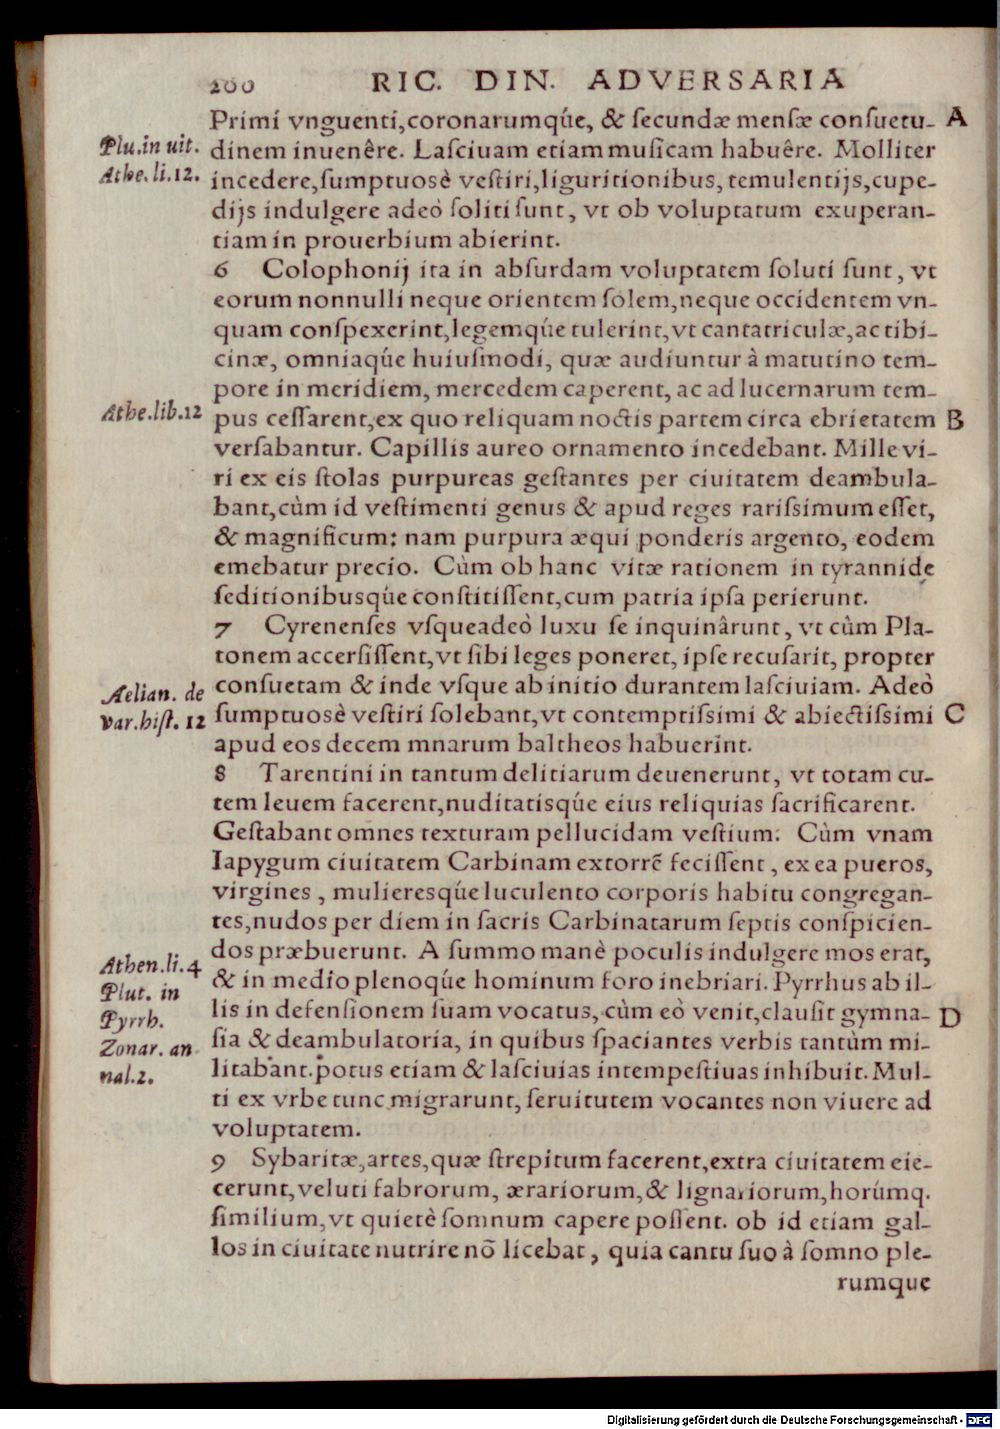 200 RIC. DIN. ADVERSARIA
Primi vnguenti,coronarumq́ue, & ſecundæ menſæ conſuetu- A
Plu.in uit. dinem inuenêre. Laſciuam etiam muſicam habuêre. Molliter
Athe. li.12. incedere,ſumptuosè veſtiri,liguritionibus, temulentijs,cupe-
dijs indulgere adeò ſoliti ſunt, vt ob voluptatum exuperan-
tiam in prouerbium abierint.
6 Colophonij ita in abſurdam voluptatem ſoluti ſunt, vt
eorum nonnulli neque orientem ſolem,neque occidentem vn-
quam conſpexerint,legemq́ue tulerint,vt cantatriculæ,ac tibi-
cinæ, omniaq́ue huiuſmodi, quæ audiuntur à matutino tem-
pore in meridiem, mercedem caperent, ac ad lucernarum tem-
Athe.lib.12 pus ceſſarent,ex quo reliquam noctis partem circa ebrietatem B
verſabantur. Capillis aureo ornamento incedebant. Mille vi-
ri ex eis ſtolas purpureas geſtantes per ciuitatem deambula-
bant,cùm id veſtimenti genus & apud reges rariſsimum eſſet,
& magnificum: nam purpura æqui ponderis argento, eodem
emebatur precio. Cùm ob hanc vitæ rationem in tyrannide
ſeditionibusq́ue conſtitiſſent,cum patria ipſa perierunt.
7 Cyrenenſes vſqueadeò luxu ſe inquinârunt, vt cùm Pla-
tonem accerſiſſent,vt ſibi leges poneret, ipſe recuſarit, propter
Aelian. de conſuetam & inde vſque ab initio durantem laſciuiam. Adeò
var.hiſt. 12 ſumptuosè veſtiri ſolebant,vt contemptiſsimi & abiectiſsimi C
apud eos decem mnarum baltheos habuerint.
8 Tarentini in tantum delitiarum deuenerunt, vt totam cu-
tem leuem facerent,nuditatisq́ue eius reliquias ſacrificarent.
Geſtabant omnes texturam pellucidam veſtium. Cùm vnam
Iapygum ciuitatem Carbinam extorrẽ feciſſent, ex ea pueros,
virgines, mulieresq́ue luculento corporis habitu congregan-
tes,nudos per diem in ſacris Carbinatarum ſeptis conſpicien-
dos præbuerunt. A ſummo manè poculis indulgere mos erat,
Athen.li.4 & in medio plenoq́ue hominum foro inebriari. Pyrrhus ab il-
Plut. in lis in defenſionem ſuam vocatus, cùm eò venit,clauſit gymna- D
Pyrrh. ſia & deambulatoria, in quibus ſpaciantes verbis tantùm mi-
Zonar. an- litabant.potus etiam & laſciuias intempeſtiuas inhibuit. Mul-
nal.2. ti ex vrbe tunc migrarunt, ſeruitutem vocantes non viuere ad
voluptatem.
9 Sybaritæ,artes,quæ ſtrepitum facerent,extra ciuitatem eie-
cerunt,veluti fabrorum, ærariorum,& lignariorum,horúmq.
ſimilium,vt quietè ſomnum capere poſſent. ob id etiam gal-
los in ciuitate nutrire nõ licebat, quia cantu ſuo à ſomno ple-
rumque
Digitalisierung gefördert durch die Deutsche Forschungsgemeinschaft - DFG